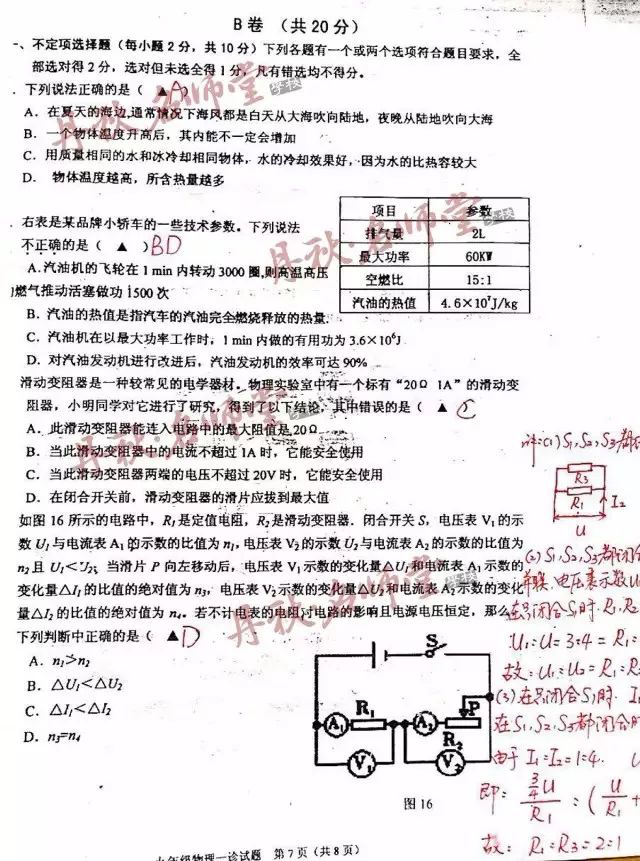 B 卷 （共 20 分）
一、不定项选择题（每小题 2 分，共 10 分）下列各题有一个或两个选项符合题目要求，全
部选对得 2 分，选对但未选全得 1 分，凡有错选均不得分。
. 下列说法正确的是（ ▲ A）
A．在夏天的海边,通常情况下海风都是白天从大海吹向陆地，夜晚从陆地吹向大海
B．一个物体温度升高后，其内能不一定会增加
C．用质量相同的水和冰冷却相同物体，水的冷却效果好，因为水的比热容较大
D． 物体温度越高，所含热量越多
. 右表是某品牌小轿车的一些技术参数。下列说法
不正确的是（ ▲ ）BD
项目 参数
排气量 2L
最大功率 60KW
空燃比 15:1
汽油的热值 4.6×10⁷J/kg
A.汽油机的飞轮在 1 min 内转动 3000 圈,则高温高压
燃气推动活塞做功 1500 次
B．汽油的热值是指汽车的汽油完全燃烧释放的热量.
C．汽油机在以最大功率工作时，1 min 内做的有用功为 3.6×10⁶J
D．对汽油发动机进行改进后，汽油发动机的效率可达 90%
滑动变阻器是一种较常见的电学器材。物理实验室中有一个标有“20Ω 1A”的滑动变
阻器，小明同学对它进行了研究，得到了以下结论，其中错误的是（ ▲ C
A．此滑动变阻器能连入电路中的最大阻值是 20Ω
B．当此滑动变阻器中的电流不超过 1A 时，它能安全使用
C．当此滑动变阻器两端的电压不超过 20V 时，它能安全使用
D．在闭合开关前，滑动变阻器的滑片应拨到最大值
如图 16 所示的电路中，R₁是定值电阻，R₂是滑动变阻器．闭合开关 S，电压表 V₁的示
数 U₁与电流表 A₁的示数的比值为 n₁，电压表 V₂的示数 U₂与电流表 A₂的示数的比值为
n₂且 U₁<U₂；当滑片 P 向左移动后，电压表 V₁示数的变化量△U₁和电流表 A₁示数的
变化量△I₁的比值的绝对值为 n₃，电压表 V₂示数的变化量△U₂和电流表 A₂示数的变化
量△I₂的比值的绝对值为 n₄。若不计电表的电阻对电路的影响且电源电压恒定，那么
下列判断中正确的是（ ▲ D
A．n₁>n₂
B．△U₁<△U₂
C．△I₁<△I₂
D．n₃=n₄
S
A₁ R₁ A₂ P
R₂
V₁ V₂
图 16
(1) S₁、S₂、S₃都
R₃
R₁ I₂
U
(2) S₁、S₂、S₃都闭合
并联，电压表示数U
在只闭合S₁时，R₁、R₂
U₁:U=3:4=R₁:
故：U₁:U₂=R₁:R
(3)在只闭合S₁时 I
在S₁、S₂、S₃都闭合时
由于 I₁:I₂=1:4． U
即：¾U/R₁ : (U/R₁ +
故：R₁:R₃=2:1
九年级物理一诊试题 第 7 页（共 8 页）
丹秋·名师堂 学校
丹秋·名师堂 学校
丹秋·名师堂
丹秋·名师堂